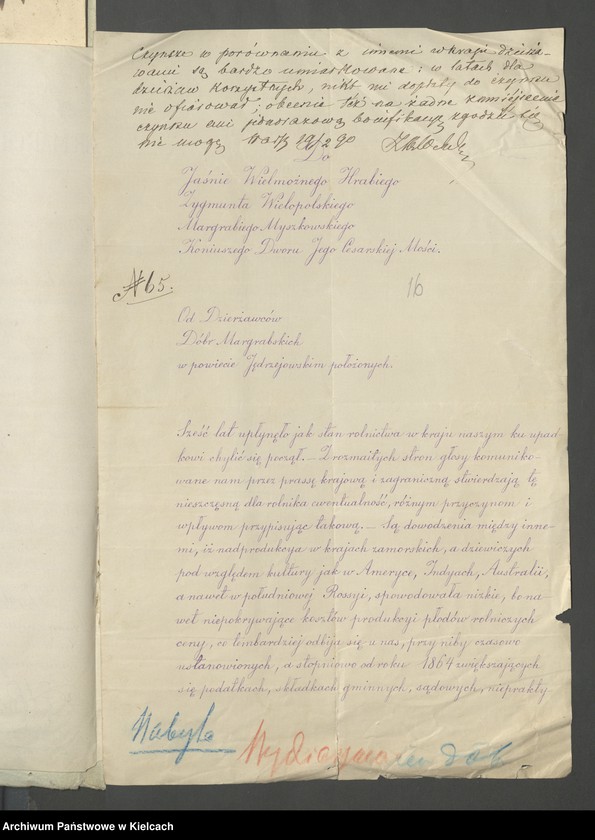 Archiwum Państwowe w Kielcach
Czynsze w porównaniu z innemi w kraju dzierża-
wami są bardzo umiarkowane; w latach dla
dzierżaw korzystnych, nikt mi dopłaty do czynszu
nie ofiarował; obecnie też na żadne zmniejszenie
czynszu ani jednorazową bonifikacyą zgodzić się
nie mogę 19/2 90
Do
Jaśnie Wielmożnego Hrabiego
Zygmunta Wielopolskiego
Margrabiego Myszkowskiego
Koniuszego Dworu Jego Cesarskiej Mości.
№ 65.
16
Od Dzierżawców
Dóbr Margrabskich
w powiecie Jędrzejowskim położonych.
Sześć lat upłynęło jak stan rolnictwa w kraju naszym ku upad-
kowi chylić się począł. — Z rozmaitych stron głosy komuniko-
wane nam przez prassę krajową i zagraniczną stwierdzają tę
nieszczęsną dla rolnika ewentualność, różnym przyczynom i
wpływom przypisując takową. — Są dowodzenia między inne-
mi, iż nadprodukcya w krajach zamorskich, a dziewiczych
pod względem kultury jak w Ameryce, Indyach, Australii,
a nawet w południowej Rossyi, spowodowała nizkie, bo na-
wet niepokrywające kosztów produkcyi płodów rolniczych
ceny, co tembardziej odbija się u nas, przy niby czasowo
ustanowionych, a stopniowo od roku 1864 zwiększających
się podatkach, składkach gminnych, sądowych, nieprakty-
Archiwum Państwowe w Kielcach